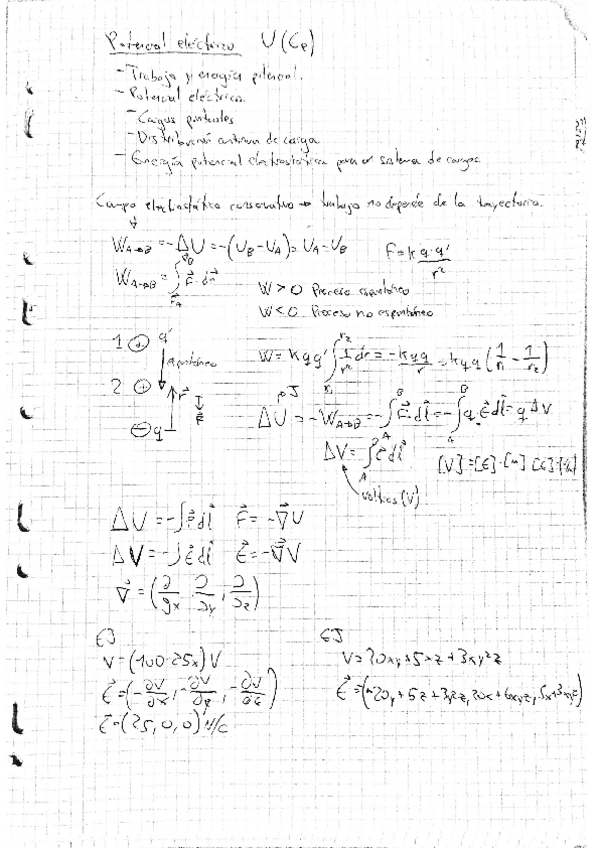 Potencial eléctrico U(Cp)
- Trabajo y energía potencial.
- Potencial eléctrico.
- Cargas puntuales
- Distribución continua de carga
- Energía potencial electrostática para un sistema de cargas
Campo electrostático conservativo → trabajo no depende de la trayectoria.
W_{A→B} = -ΔU = -(U_B - U_A) = U_A - U_B
F = k q·q' / r²
W_{A→B} = ∫_{r_A}^{r_B} F⃗·dr⃗
W > 0 Proceso espontáneo
W < 0 Proceso no espontáneo
1 ⊕ q'
espontáneo
2 ⊕ F⃗
⊖ q
W = k q q' ∫_{r_1}^{r_2} 1/r² dr = -kqq/r = kqq (1/r_1 - 1/r_2)
J
ΔU = -W_{A→B} = -∫_A^B F⃗ dl⃗ = -∫_A^B q·E⃗ dl⃗ = qΔV
ΔV = ∫_A^B E⃗ dl⃗
voltios (V)
[V] = [E]·[m]
ΔU = -∫F⃗ dl⃗ F⃗ = -∇⃗U
ΔV = -∫E⃗ dl⃗ E⃗ = -∇⃗V
∇⃗ = (∂/∂x, ∂/∂y, ∂/∂z)
EJ
V = (100-25x) V
E⃗ = (-∂V/∂x, -∂V/∂y, -∂V/∂z)
E⃗ = (25, 0, 0) N/C
EJ
V = 20xy + 5xz + 3xy²z